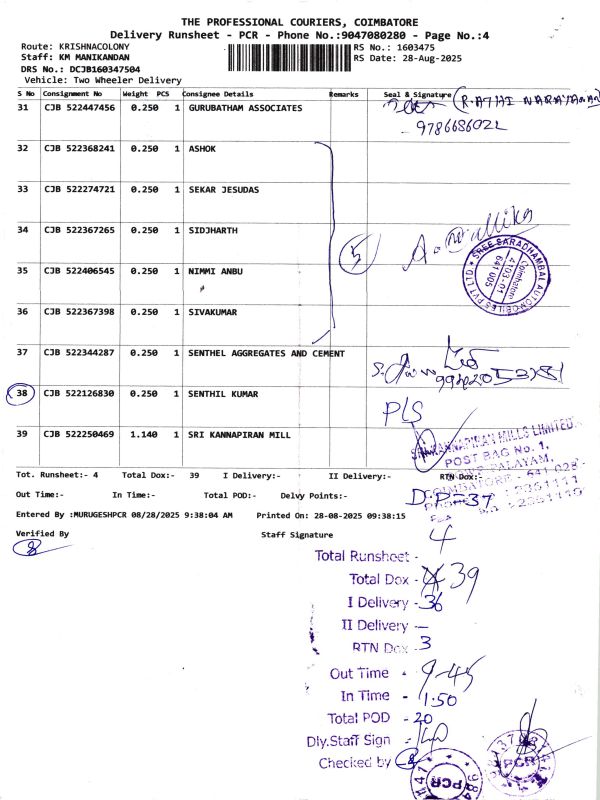 THE PROFESSIONAL COURIERS, COIMBATORE
Delivery Runsheet - PCR - Phone No.:9047080280 - Page No.:4
Route: KRISHNACOLONY
RS No.: 1603475
Staff: KM MANIKANDAN
RS Date: 28-Aug-2025
DRS No.: DCJB160347504
Vehicle: Two Wheeler Delivery
S No Consignment No Weight PCS Consignee Details Remarks Seal & Signature
31 CJB 522447456 0.250 1 GURUBATHAM ASSOCIATES
9786686022
32 CJB 522368241 0.250 1 ASHOK
33 CJB 522274721 0.250 1 SEKAR JESUDAS
34 CJB 522367265 0.250 1 SIDJHARTH
5
SREE SARADHAMBAL AUTOMOBILES PVT LTD
4103-01
Coimbatore
641 005
35 CJB 522406545 0.250 1 NIMMI ANBU
36 CJB 522367398 0.250 1 SIVAKUMAR
37 CJB 522344287 0.250 1 SENTHEL AGGREGATES AND CEMENT
38 CJB 522126830 0.250 1 SENTHIL KUMAR
PLS
39 CJB 522250469 1.140 1 SRI KANNAPIRAN MILL
SRI KANNAPIRAN MILLS LIMITED
POST BAG No. 1,
COIMBATORE - 641 028
Tot. Runsheet:- 4 Total Dox:- 39 I Delivery:- II Delivery:- RTN Dox:-
Out Time:- In Time:- Total POD:- Delvy Points:-
D.P=37
Entered By :MURUGESHPCR 08/28/2025 9:38:04 AM Printed On: 28-08-2025 09:38:15
Verified By Staff Signature
Total Runsheet - 4
Total Dox - 39
I Delivery - 36
II Delivery -
RTN Dox - 3
Out Time - 9-45
In Time - 1.50
Total POD - 20
Dly.Staff Sign -
Checked by
PCR
PCR